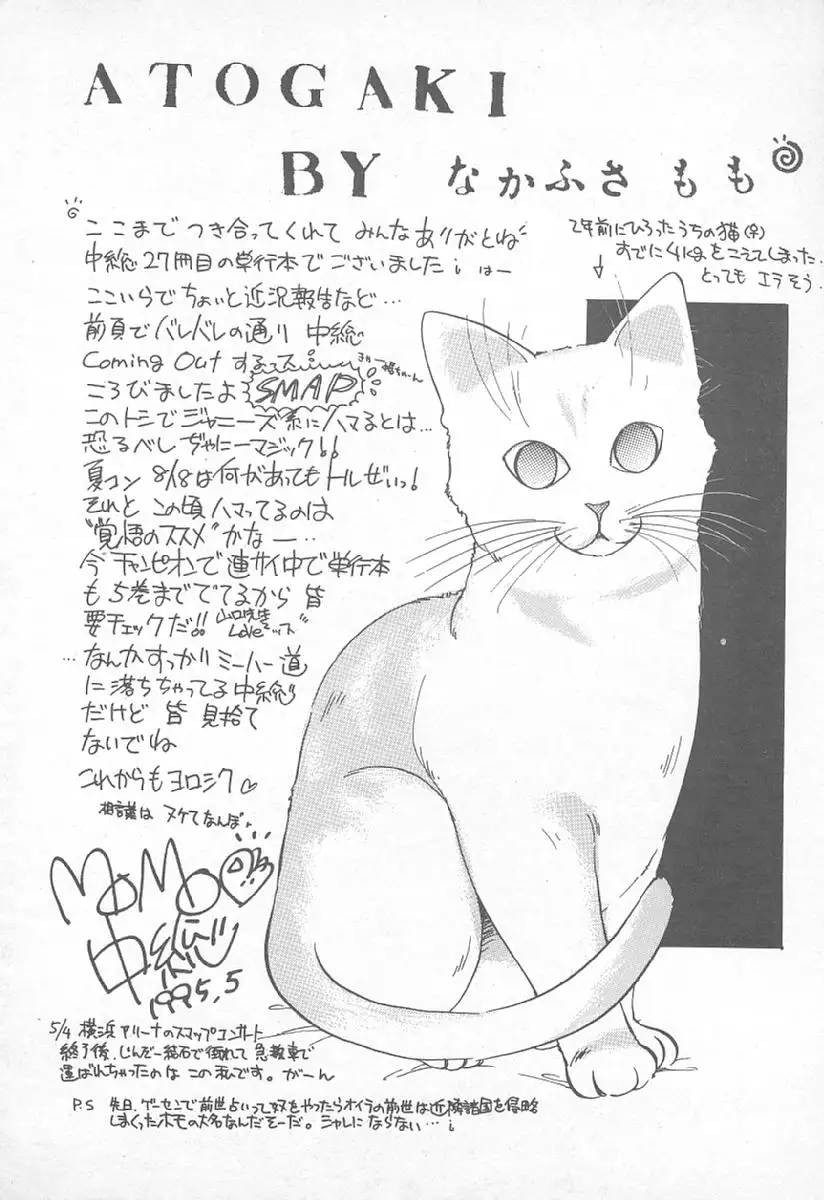 ATOGAKI
BY なかふさ もも
ここまで つき合ってくれて みんなありがとね
中総27冊目の単行本でございました はー
ここいらでちょいと近況報告など…
前頁でバレバレの通り 中総
Coming Out する
ころびましたよ SMAP
このトシでジャニーズ系にハマるとは…
恐るべし ぢゃにーマジック!!
夏コン 8/18は何があってもトルぜいっ!
それと この頃ハマってるのは
"覚悟のススメ"かなー…
今チャンピオンで連サイ中で単行本
も5巻まででてるから 皆
要チェックだ!! 山口先生 Loveミッス
…なんかすっかりミーハー道
に落ちちゃってる中総
だけど 皆 見捨て
ないでね
これからもヨロシク♡
相談は ヌケてなんぼ
2年前にひろったうちの猫(♀)
すでに4kgをこえてしまった…
とっても エラそう…
MOMO
中総
1995.5
5/4 横浜アリーナのスマップコンサート
終了後、じんぞー結石で倒れて 急救車で
運ばれちゃったのは この私です。がーん
P.S 先日、ゲーセンで前世占いって奴をやったらオイラの前世は近隣諸国を侵略
しまくったホモの大名なんだそーだ。シャレにならない…